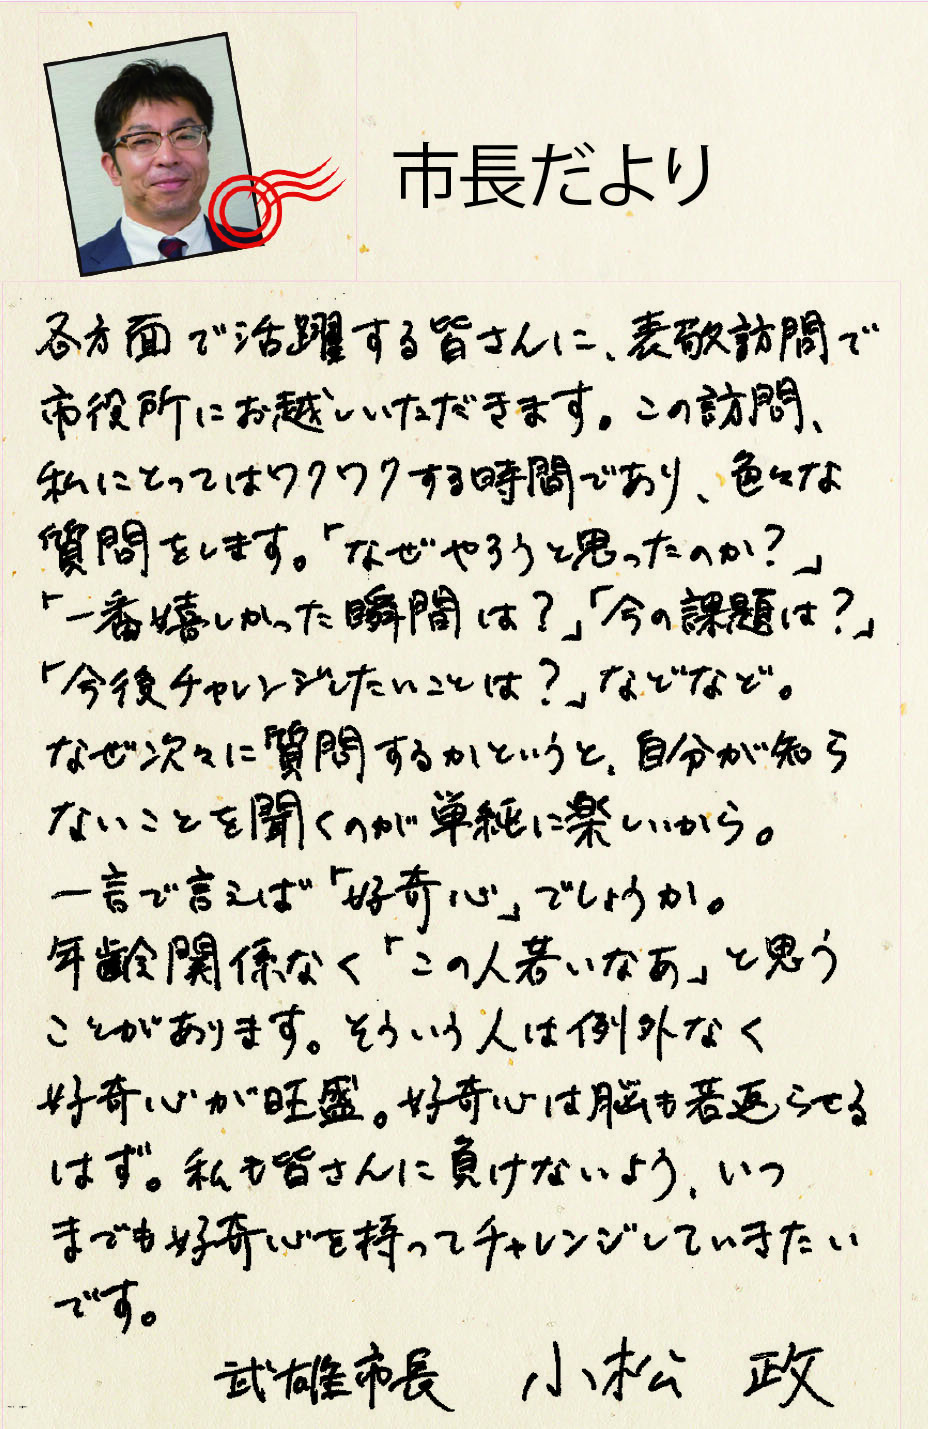 市長だより
各方面で活躍する皆さんに、表敬訪問で
市役所にお越しいただきます。この訪問、
私にとってはワクワクする時間であり、色々な
質問をします。「なぜやろうと思ったのか？」
「一番嬉しかった瞬間は？」「今の課題は？」
「今後チャレンジしたいことは？」などなど。
なぜ次々に質問するかというと、自分が知ら
ないことを聞くのが単純に楽しいから。
一言で言えば「好奇心」でしょうか。
年齢関係なく「この人若いなあ」と思う
ことがあります。そういう人は例外なく
好奇心が旺盛。好奇心は脳も若返らせる
はず。私も皆さんに負けないよう、いつ
までも好奇心を持ってチャレンジしていきたい
です。
武雄市長 小松 政